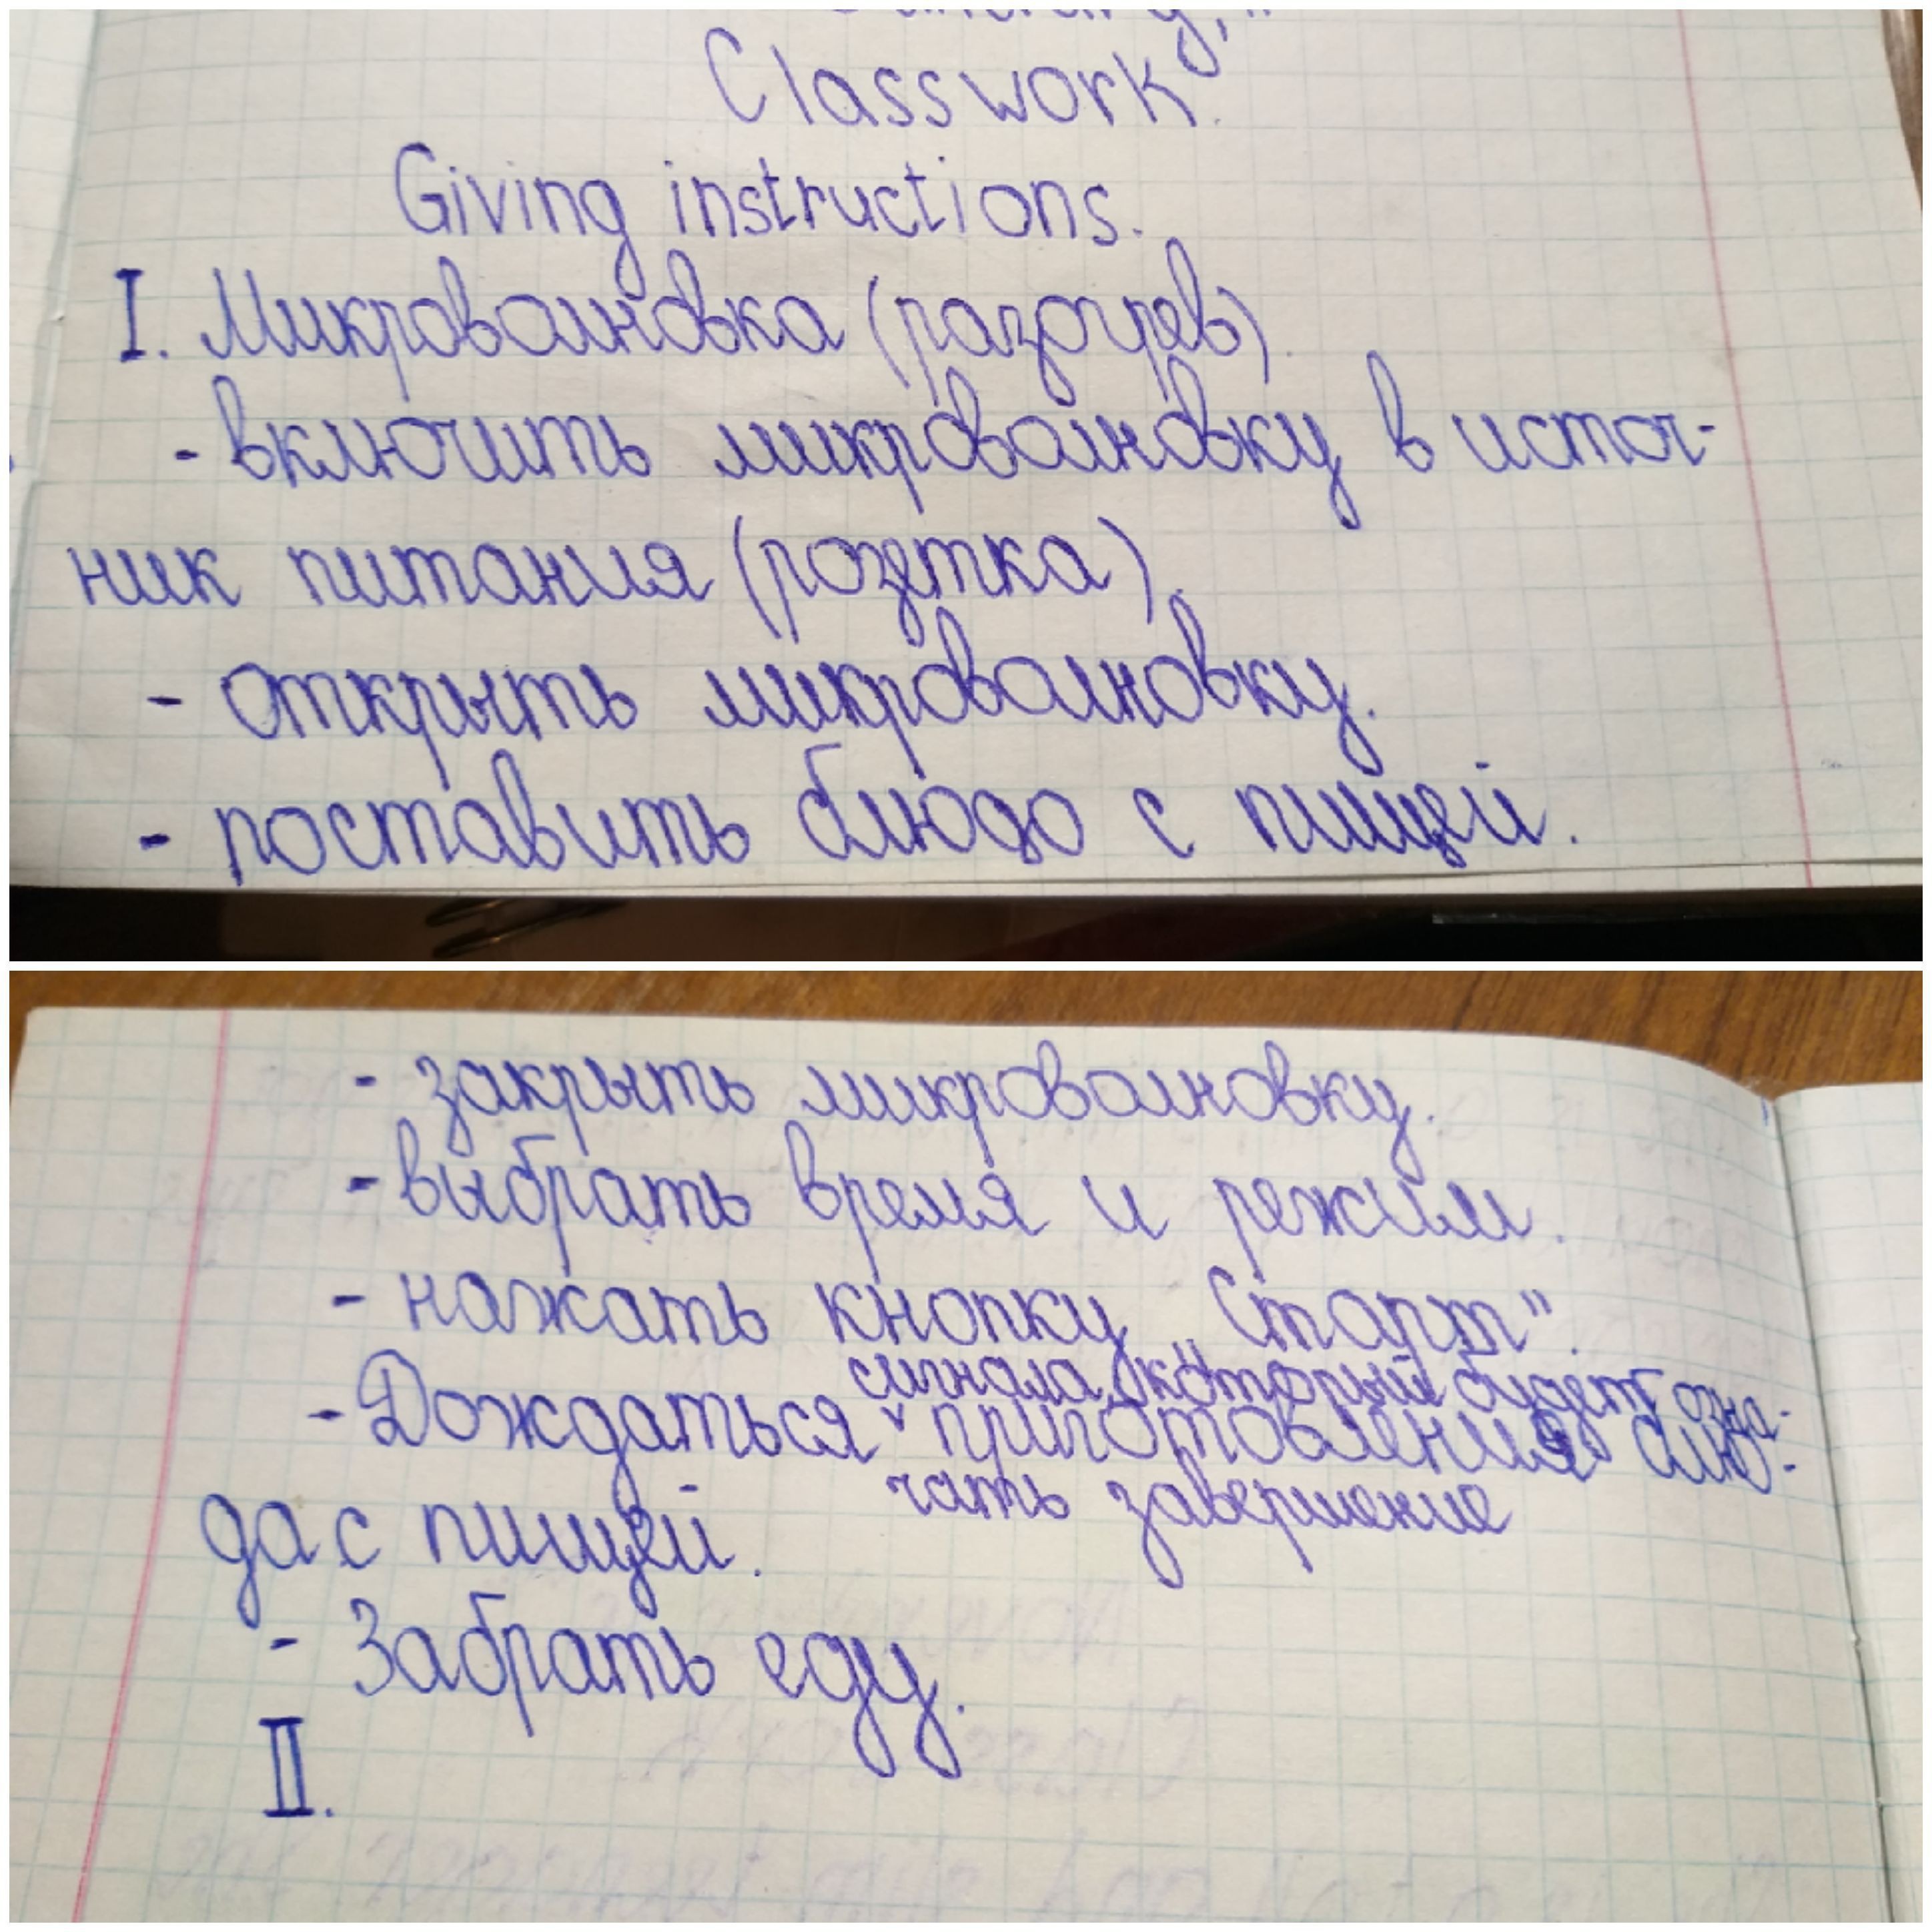 Classwork.
Giving instructions.
I. Микроволновка (разогрев).
- включить микроволновку в источ-
ник питания (розетка).
- открыть микроволновку.
- поставить блюдо с пищей.
- закрыть микроволновку.
- выбрать время и режим.
- нажать кнопку „Старт".
сигнала, который будет озна-
- Дождаться приготовления блю-
чать завершение
да с пищей.
- Забрать еду.
II.